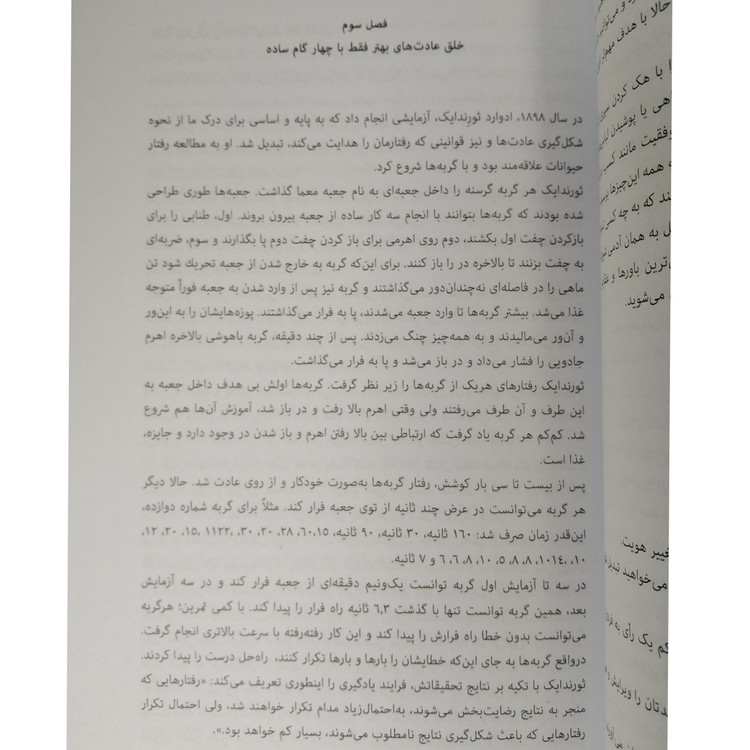 فصل سوم
خلق عادت‌های بهتر فقط با چهار گام ساده
در سال ۱۸۹۸، ادوارد ثورندایک، آزمایشی انجام داد که به پایه و اساسی برای درک ما از نحوه
شکل‌گیری عادت‌ها و نیز قوانینی که رفتارمان را هدایت می‌کند، تبدیل شد. او به مطالعه رفتار
حیوانات علاقه‌مند بود و با گربه‌ها شروع کرد.
ثورندایک هر گربه گرسنه را داخل جعبه‌ای به نام جعبه معما گذاشت. جعبه‌ها طوری طراحی
شده بودند که گربه‌ها بتوانند با انجام سه کار ساده از جعبه بیرون بروند. اول، طنابی را برای
بازکردن چفت اول بکشند، دوم روی اهرمی برای باز کردن چفت دوم پا بگذارند و سوم، ضربه‌ای
به چفت بزنند تا بالاخره در را باز کنند. برای این‌که گربه به خارج شدن از جعبه تحریک شود تن
ماهی را در فاصله‌ای نه‌چندان‌دور می‌گذاشتند و گربه نیز پس از وارد شدن به جعبه فوراً متوجه
غذا می‌شد. بیشتر گربه‌ها تا وارد جعبه می‌شدند، پا به فرار می‌گذاشتند. پوزه‌هایشان را به این‌ور
و آن‌ور می‌مالیدند و به همه‌چیز چنگ می‌زدند. پس از چند دقیقه، گربه باهوشی بالاخره اهرم
جادویی را فشار می‌داد و در باز می‌شد و پا به فرار می‌گذاشت.
ثورندایک رفتارهای هریک از گربه‌ها را زیر نظر گرفت. گربه‌ها اولش بی هدف داخل جعبه به
این طرف و آن طرف می‌رفتند ولی وقتی اهرم بالا رفت و در باز شد، آموزش آن‌ها هم شروع
شد. کم‌کم هر گربه یاد گرفت که ارتباطی بین بالا رفتن اهرم و باز شدن در وجود دارد و جایزه،
غذا است.
پس از بیست تا سی بار کوشش، رفتار گربه‌ها به‌صورت خودکار و از روی عادت شد. حالا دیگر
هر گربه می‌توانست در عرض چند ثانیه از توی جعبه فرار کند. مثلاً برای گربه شماره دوازده،
این‌قدر زمان صرف شد: ۱۶۰ ثانیه، ۳۰ ثانیه، ۹۰ ثانیه، ۶۰،۱۵، ۲۸، ۲۰، ۳۰، ،۱۱۲۲ ،۱۵، ۲۰، ۱۲،
۱۰، ،۱۰۱۴، ۸، ۸، ۵، ۱۰، ۸، ۶، ۶ و ۷ ثانیه.
در سه تا آزمایش اول گربه توانست یک‌ونیم دقیقه‌ای از جعبه فرار کند و در سه آزمایش
بعد، همین گربه توانست تنها با گذشت ۶،۳ ثانیه راه فرار را پیدا کند. با کمی تمرین؛ هرگربه
می‌توانست بدون خطا راه فرارش را پیدا کند و این کار رفته‌رفته با سرعت بالاتری انجام گرفت.
درواقع گربه‌ها به جای این‌که خطایشان را بارها و بارها تکرار کنند، راه‌حل درست را پیدا کردند.
ثورندایک با تکیه بر نتایج تحقیقاتش، فرایند یادگیری را اینطوری تعریف می‌کند: «رفتارهایی که
منجر به نتایج رضایت‌بخش می‌شوند، به‌احتمال‌زیاد مدام تکرار خواهند شد، ولی احتمال تکرار
رفتارهایی که باعث شکل‌گیری نتایج نامطلوب می‌شوند، بسیار کم خواهد بود.».
حالا با هدف
با هک کردن
یا پوشیدن
وفقیت مانند
همه این‌چیزها
که به چه کسی
به همان آدمی
باورها و
می‌شوید.
تغییر هویت.
می‌خواهید تبدیل
کم یک رأی به
را ویرایش و